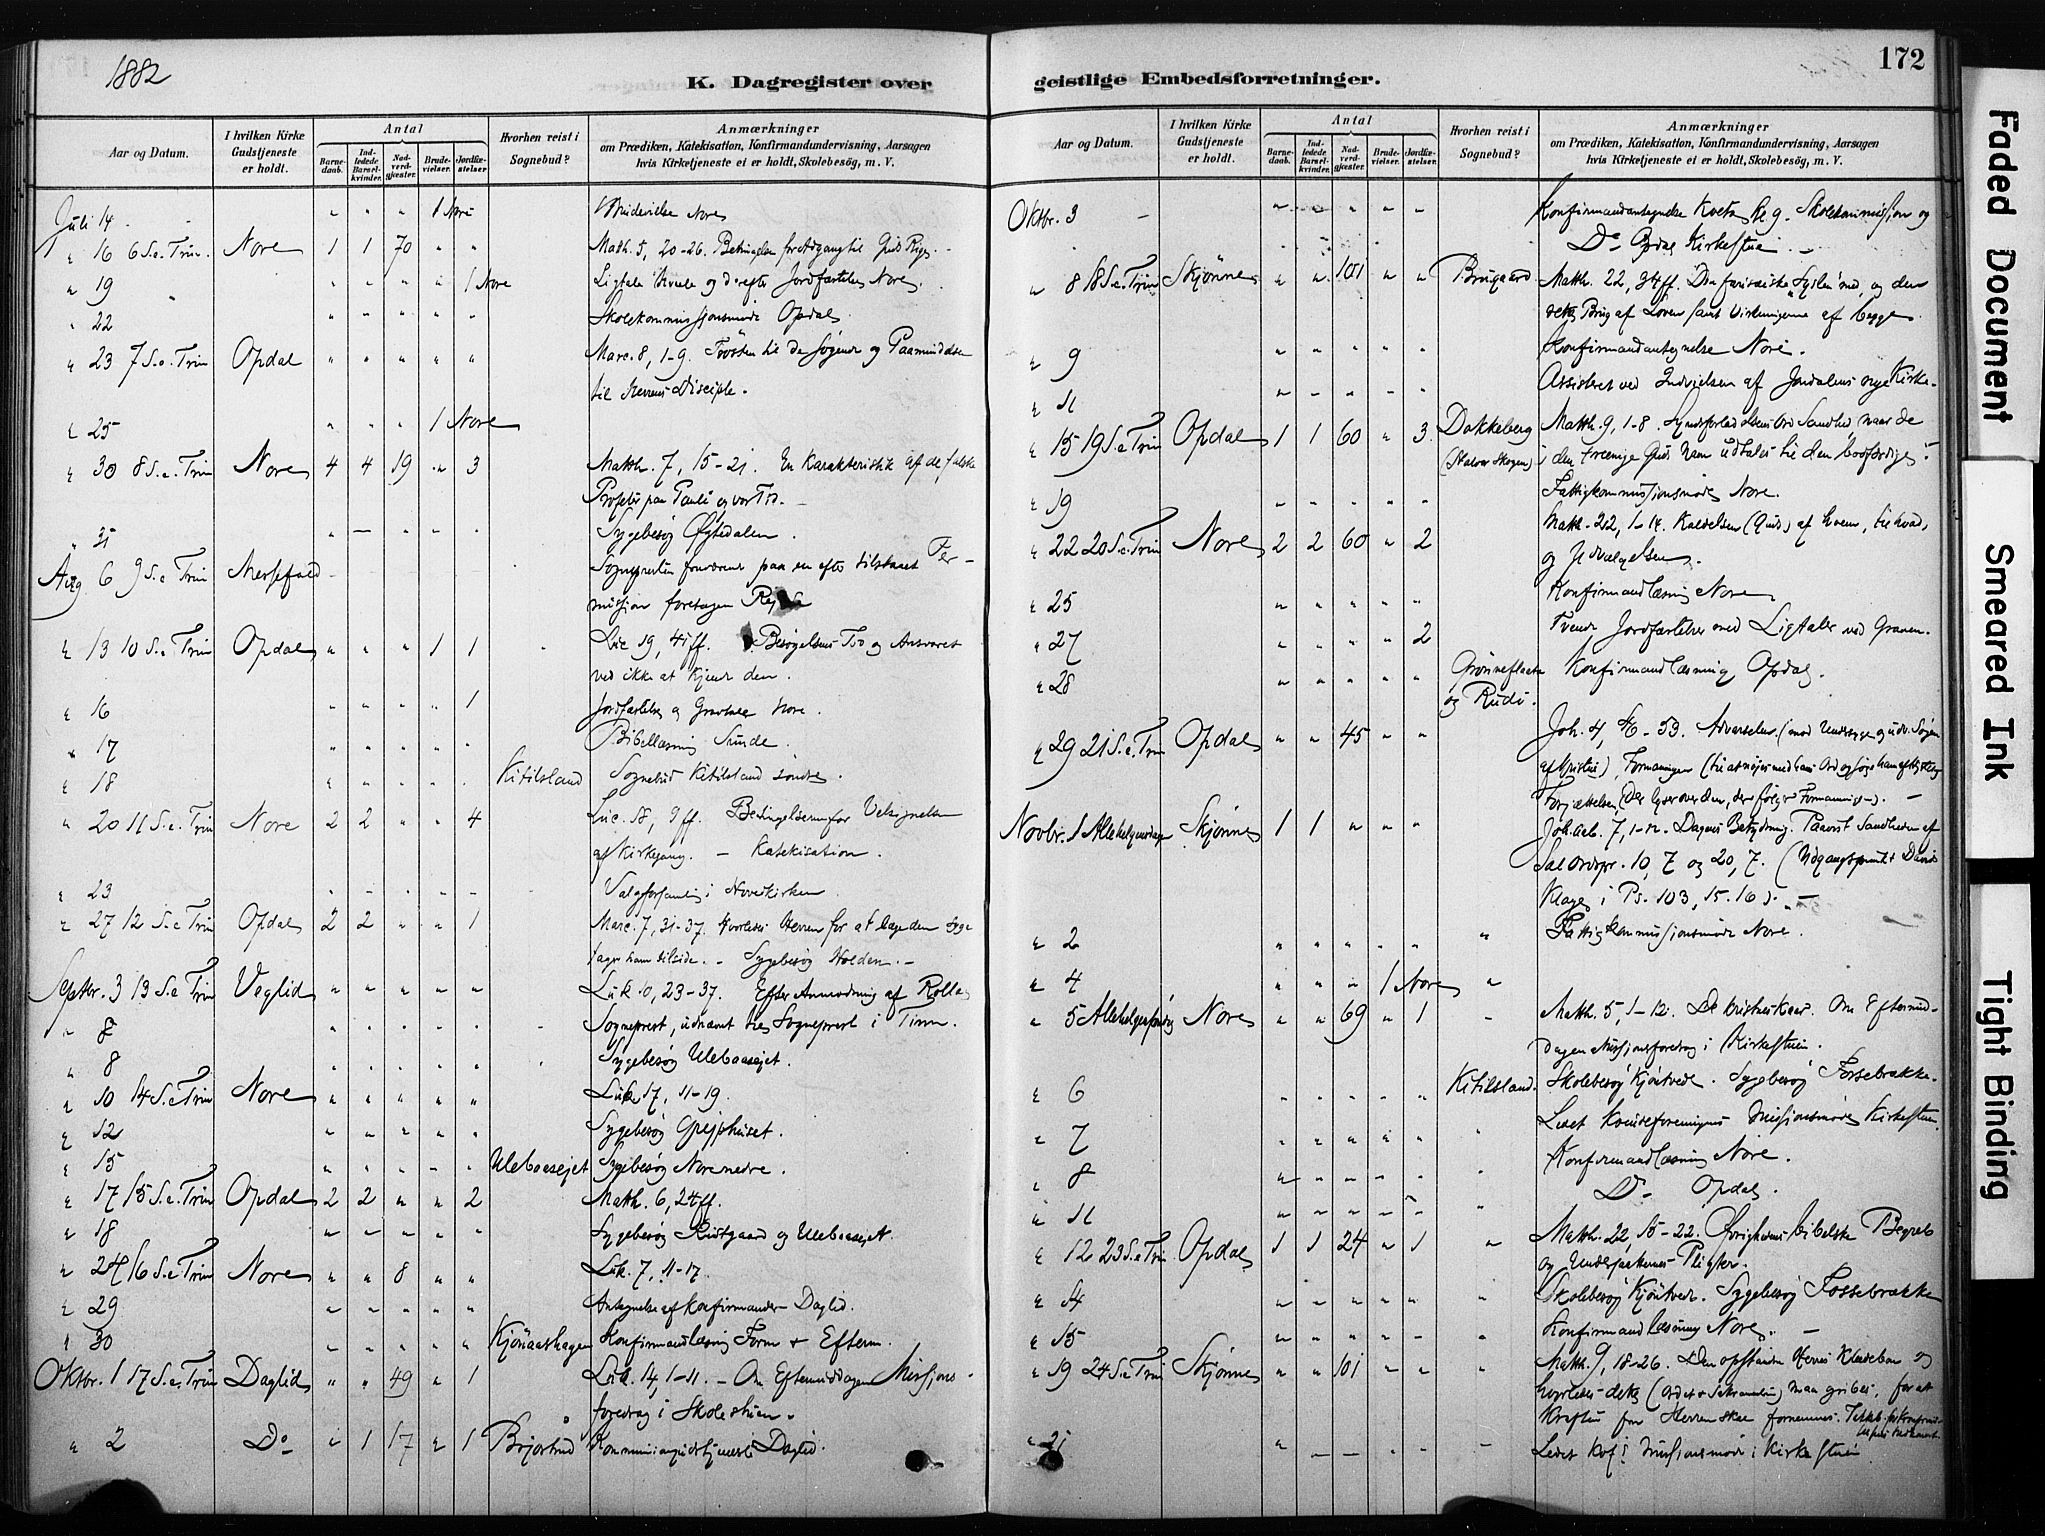 1882
K. Dagregister over
Aar og Datum.
I hvilken Kirke Gudstjeneste er holdt.
Antal
Barnedaab.
Indledede Barselkvinder.
Nadverdgjæster.
Brudevielser.
Jordfæstelser.
Hvorhen reist i Sognebud?
Anmærkninger
om Prædiken, Katekisation, Konfirmandundervisning, Aarsagen
hvis Kirketjeneste ei er holdt, Skolebesög, m. V.
Juli 14 " " " 1 Nore Brudevielse Nore
" 16 6 S. e. Trin. Nore 1 1 70 " " Matth. 5, 20-26. Betingelse for Adgang til Guds Rige.
" 19 " " " " 1 Nore Ligtale og derefter Jordfæstelse Nore.
" 22 " " " " " Skolekommissjonsmöde Opdal
" 23 7 S. e. Trin Opdal " " " " " Marc. 8, 1-9. Trösten til de Sögende og Paamindelse
til Herrens Disciple.
" 25 " " " 1 Nore
" 30 8 S. e. Trin Nore 4 4 19 " 3 Matth. 7, 15-21. En Karakteristik af de falske
Profeter paa Pauli og vor Tid.
" 31 " — " " " Sygebesög Øygtedalen.
Aug. 6 9 S. e. Trin Messefald Sognepresten fraværende paa en efter tilstaaet Per-
missjon foretagen Rejse
" 13 10 S. e. Trin Opdal " " " 1 1 Luc. 19, 41 ff. Besögelsens Tid og Ansvaret
ved ikke at kjende den.
" 16 " " " " 1 Jordfæstelse og Gravtale Nore.
" 17 " " " " " Bibellæsning Sunde.
" 18 " " " " " Kitilsland Sognebud Kitilsland söndre.
" 20 11 S. e. Trin Nore 2 2 " " 4 Luc. 18, 9 ff. Betingelserne for Velsignelse
af Kirkegang. — Katekisation.
" 23 " " " " " Valgforsamling i Norekirken
" 27 12 S. e. Trin Opdal 2 2 " " 1 Marc. 7, 31-37. Hvorledes Herren for at læge den Syge
tager ham tilside. — Sygebesög Holden. —
Septbr. 3 13 S. e. Trin Veglid " " " " " Luk. 10, 23-37. Efter Anmodning af Rollag
" 8 " " " " " Sogneprest, udnævnt til Sogneprest i Tinn.
" 8 " " " " " Sygebesög Ulebaasejet.
" 10 14 S. e. Trin Nore " " " " " Luk. 17, 11-19.
" 12 " " " " " Sygebesög Grejphuset.
" 15 " " " " " Ulebaasejet Sygebesög Nore nedre.
" 17 15 S. e. Trin Opdal 2 2 " " 2 Matth. 6, 24 ff.
" 18 " " " " " Sygebesög Rustgaard og Ulebaasejet.
" 24 16 S. e. Trin Nore " " 8 " " Luk. 7, 11-17.
" 29 " " " " " Antegnelse af Konfirmander Daglid.
" 30 " " " " " Kjönaashagen Konfirmandlæsning Form. + Efterm.
Oktbr. 1 17 S. e. Trin Daglid " " 49 " 1 Luk. 14, 1-11. — Om Eftermiddagen Missjons-
foredrag i Skolestuen.
" 2 Do " 1 17 " 1 Kommuniongudstjeneste Daglid.
geistlige Embedsforretninger.
172
Aar og Datum.
I hvilken Kirke Gudstjeneste er holdt.
Antal
Barnedaab.
Indledede Barselkvinder.
Nadverdgjæster.
Brudevielser.
Jordfæstelser.
Hvorhen reist i Sognebud?
Anmærkninger
om Prædiken, Katekisation, Konfirmandundervisning, Aarsagen
hvis Kirketjeneste ei er holdt, Skolebesög, m. V.
Oktbr. 3 — " " " " " Konfirmandantegnelse Skolekommissjon og
Do Opdal Kirkestue. —
" 8 18 S. e. Trin Skjönne " " 101 " " Brugaard Matth. 22, 34 ff. Den farisæiske og den
rette Brug af Loven samt Virkningerne af begge.
" 9 " " " " " Konfirmandantegnelse Nore.
" 11 " " " " " Assisteret ved Indvielsen af Jondalens nye Kirke.
" 15 19 S. e. Trin Opdal 1 1 60 " 3 Dokkeberg Matth. 9, 1-8. Syndsforladelsens Ord Sandhed naar de
(Halvor Skogen) i den treenige Guds Navn udtales til den bodfærdige.
" 19 " " " " " Fattigkommissjonsmöde Nore.
" 22 20 S. e. Trin Nore 2 2 60 " 2 Matth. 22, 1-14. Kaldelsen (Guds) af hvem, til hvad,
og Udvælgelsen.
" 25 " " " " " Konfirmandlæsning Nore
" 27 " " " " 2 Tvende Jordfæstelser med Ligtaler ved Graven.
" 28 " " " " " Grönneflaate og Rudi. Konfirmandlæsning Opdal.
" 29 21 S. e. Trin Opdal " " 45 " " Joh. 4, 46-53. Advarselen
Novbr. 1 Allehelgensdag Skjönne 1 1 " " " Joh. Aab. 7, 1-12. Dagens Betydning. Sandheden af
Sal. Ordspr. 10, 7 og 20, 7. (Udgangspunkt Davids
Klage i Ps. 103, 15. 16). —
" 2 " " " " " " Fattigkommissjonsmöde Nore.
" 4 " " " 1 Nore "
" 5 Nore " " 69 " 1 " Matth. 5, 1-12. De Kristnes Kaar. Om Eftermid-
dagen Missjonsforedrag i Kirkestuen.
" 6 " " " " " Kitilsland. Skolebesög Kjöntvedt. Sygebesög Fossebrække.
" 7 " " " " " Ledet Kvindeforeningens Missjonsmöde Kirkestuen.
" 8 " " " " " Konfirmandlæsning Nore.
" 11 " " " " " Do Opdal.
" 12 23 S. e. Trin Opdal 1 1 24 " 1 " Matth. 22, 15-22. Øvrighedens bibelske Begreb
og Undersaatternes Pligter.
" 14 " " " " " " Skolebesög Kjöntvedt. Sygebesög Fossebrække
" 15 " " " " " " Konfirmandlæsning Nore. —
" 19 24 S. e. Trin Skjönne " " 101 " " " Matth. 9, 18-26. Den opstandne Herres Klædebon og
hvorledes dette (Ordet + Sakramenterne) maa gribes, for at
Kraften fra Herren skal fornemmes.
" 21 " — — " " Ledet Missjonsmöde i Kirkestuen
Faded Document
Smeared Ink
Tight Binding